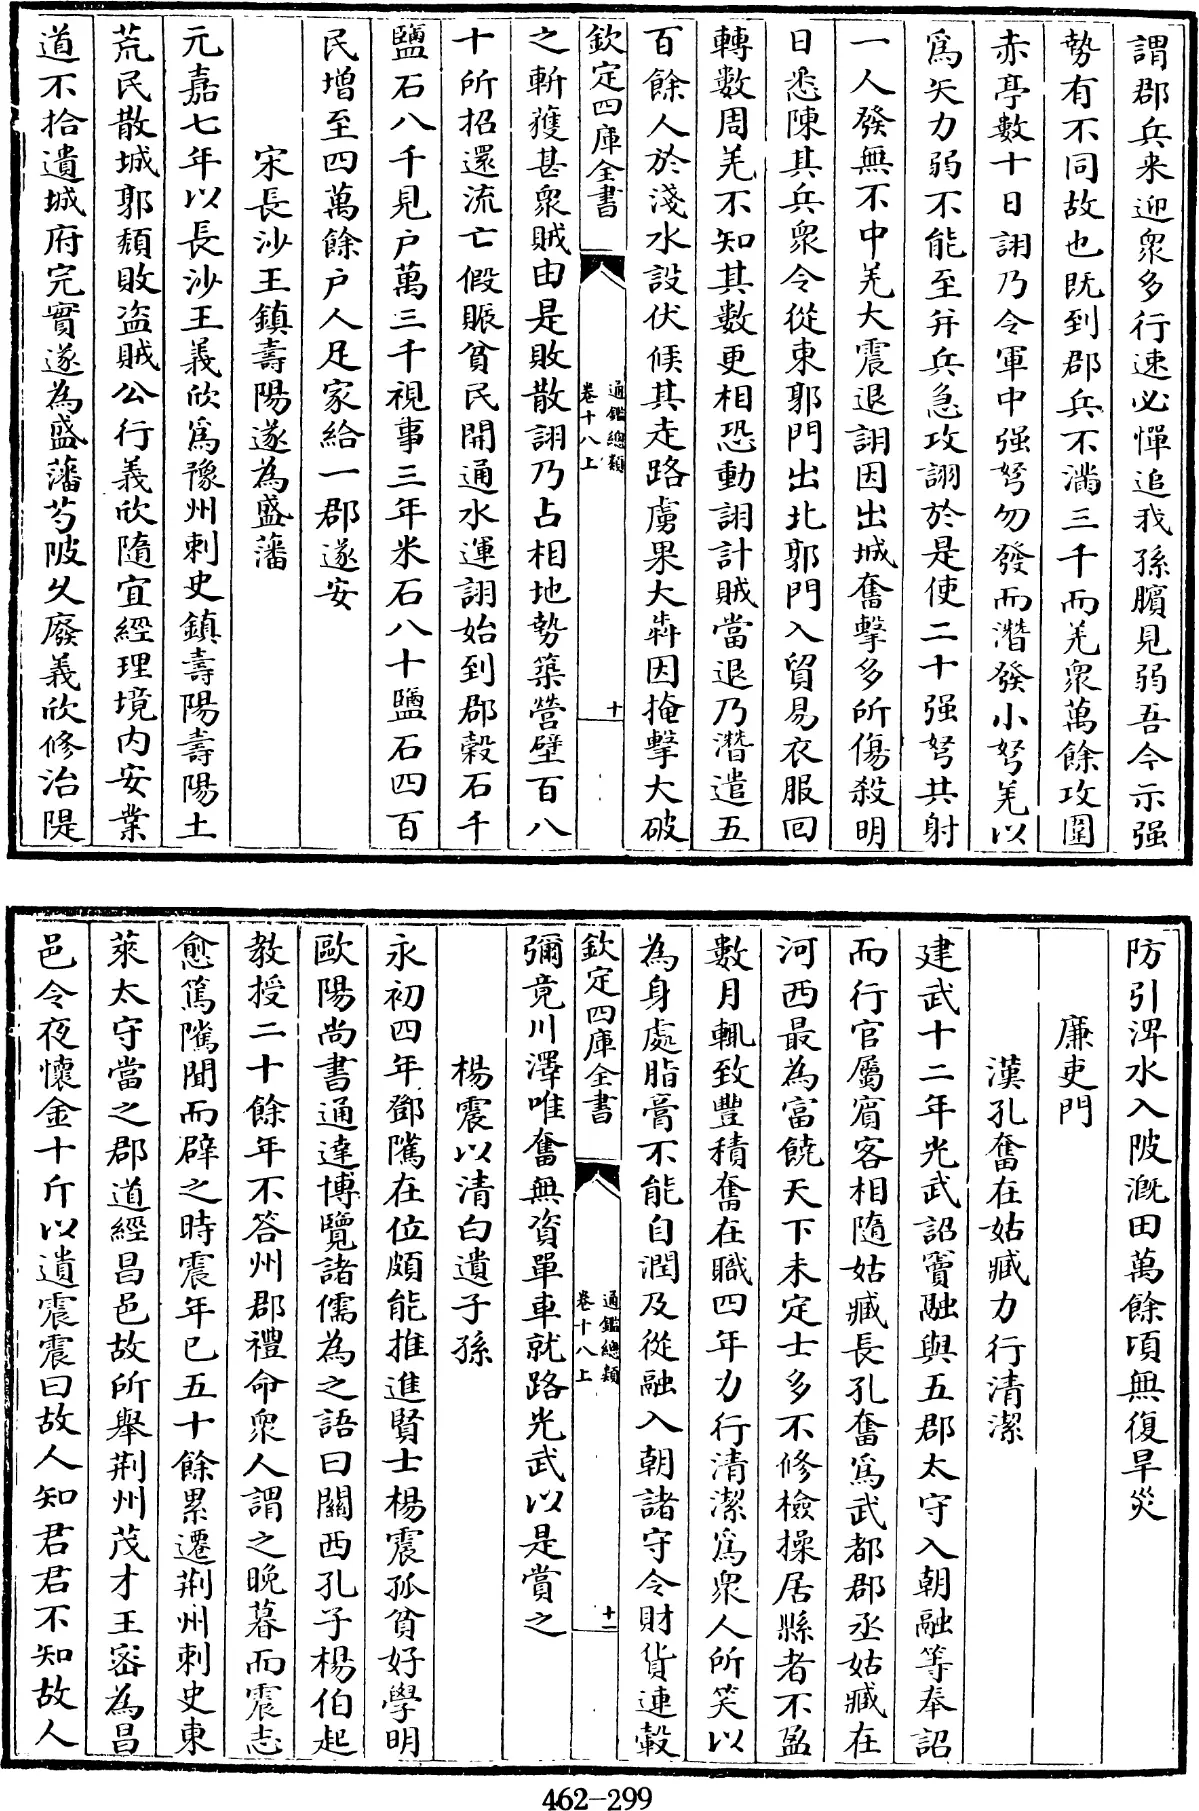 謂郡兵来迎衆多行速必憚追我孫臏見弱吾今示强
勢有不同故也既到郡兵不滿三千而羌衆萬餘攻圍
赤亭數十日詡乃令軍中强弩勿發而潛發小弩羌以
爲矢力弱不能至并兵急攻詡於是使二十强弩共射
一人發無不中羌大震退詡因出城奮擊多所傷殺明
日悉陳其兵衆令從東郭門出北郭門入貿易衣服回
轉數周羌不知其數更相恐動詡計賊當退乃潛遣五
百餘人於淺水設伏候其走路虜果大犇因掩擊大破
欽定四庫全書
通鑑總類
卷十八上
十
之斬獲甚衆賊由是敗散詡乃占相地勢築營壁百八
十所招還流亡假賑貧民開通水運詡始到郡穀石千
鹽石八千見户萬三千視事三年米石八十鹽石四百
民增至四萬餘户人足家給一郡遂安
宋長沙王鎮壽陽遂為盛藩
元嘉七年以長沙王義欣爲豫州刺史鎮壽陽壽陽土
荒民散城郭頽敗盗賊公行義欣隨宜經理境内安業
道不拾遺城府完實遂為盛藩芍陂乆廢義欣修治隄
防引渒水入陂溉田萬餘頃無復旱災
廉吏門
漢孔奮在姑臧力行清潔
建武十二年光武詔竇融與五郡太守入朝融等奉詔
而行官屬賔客相隨姑臧長孔奮爲武都郡丞姑臧在
河西最為富饒天下未定士多不修檢操居縣者不盈
數月輒致豐積奮在職四年力行清潔爲衆人所笑以
為身處脂膏不能自潤及從融入朝諸守令財貨連轂
欽定四庫全書
通鑑總類
卷十八上
十一
彌竟川澤唯奮無資單車就路光武以是賞之
楊震以清白遺子孫
永初四年鄧隲在位頗能推進賢士楊震孤貧好學明
歐陽尚書通達博覽諸儒為之語曰關西孔子楊伯起
教授二十餘年不答州郡禮命衆人謂之晩暮而震志
愈篤隲聞而辟之時震年已五十餘累遷荆州刺史東
萊太守當之郡道經昌邑故所舉荆州茂才王宻為昌
邑令夜懷金十斤以遺震震曰故人知君君不知故人
462-299